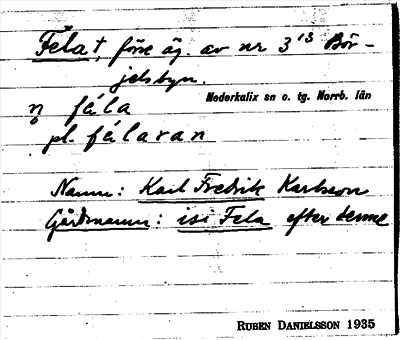 Fela †, förre äg. av nr 3¹³ Bör-
jelsbyn.
Nederkalix sn o. tg. Norrb. län
n fe´la
pl. fe´laran
Namn: Karl Fredrik Karlsson
Gårdsnamn: isi Fela efter denne
RUBEN DANIELSSON 1935